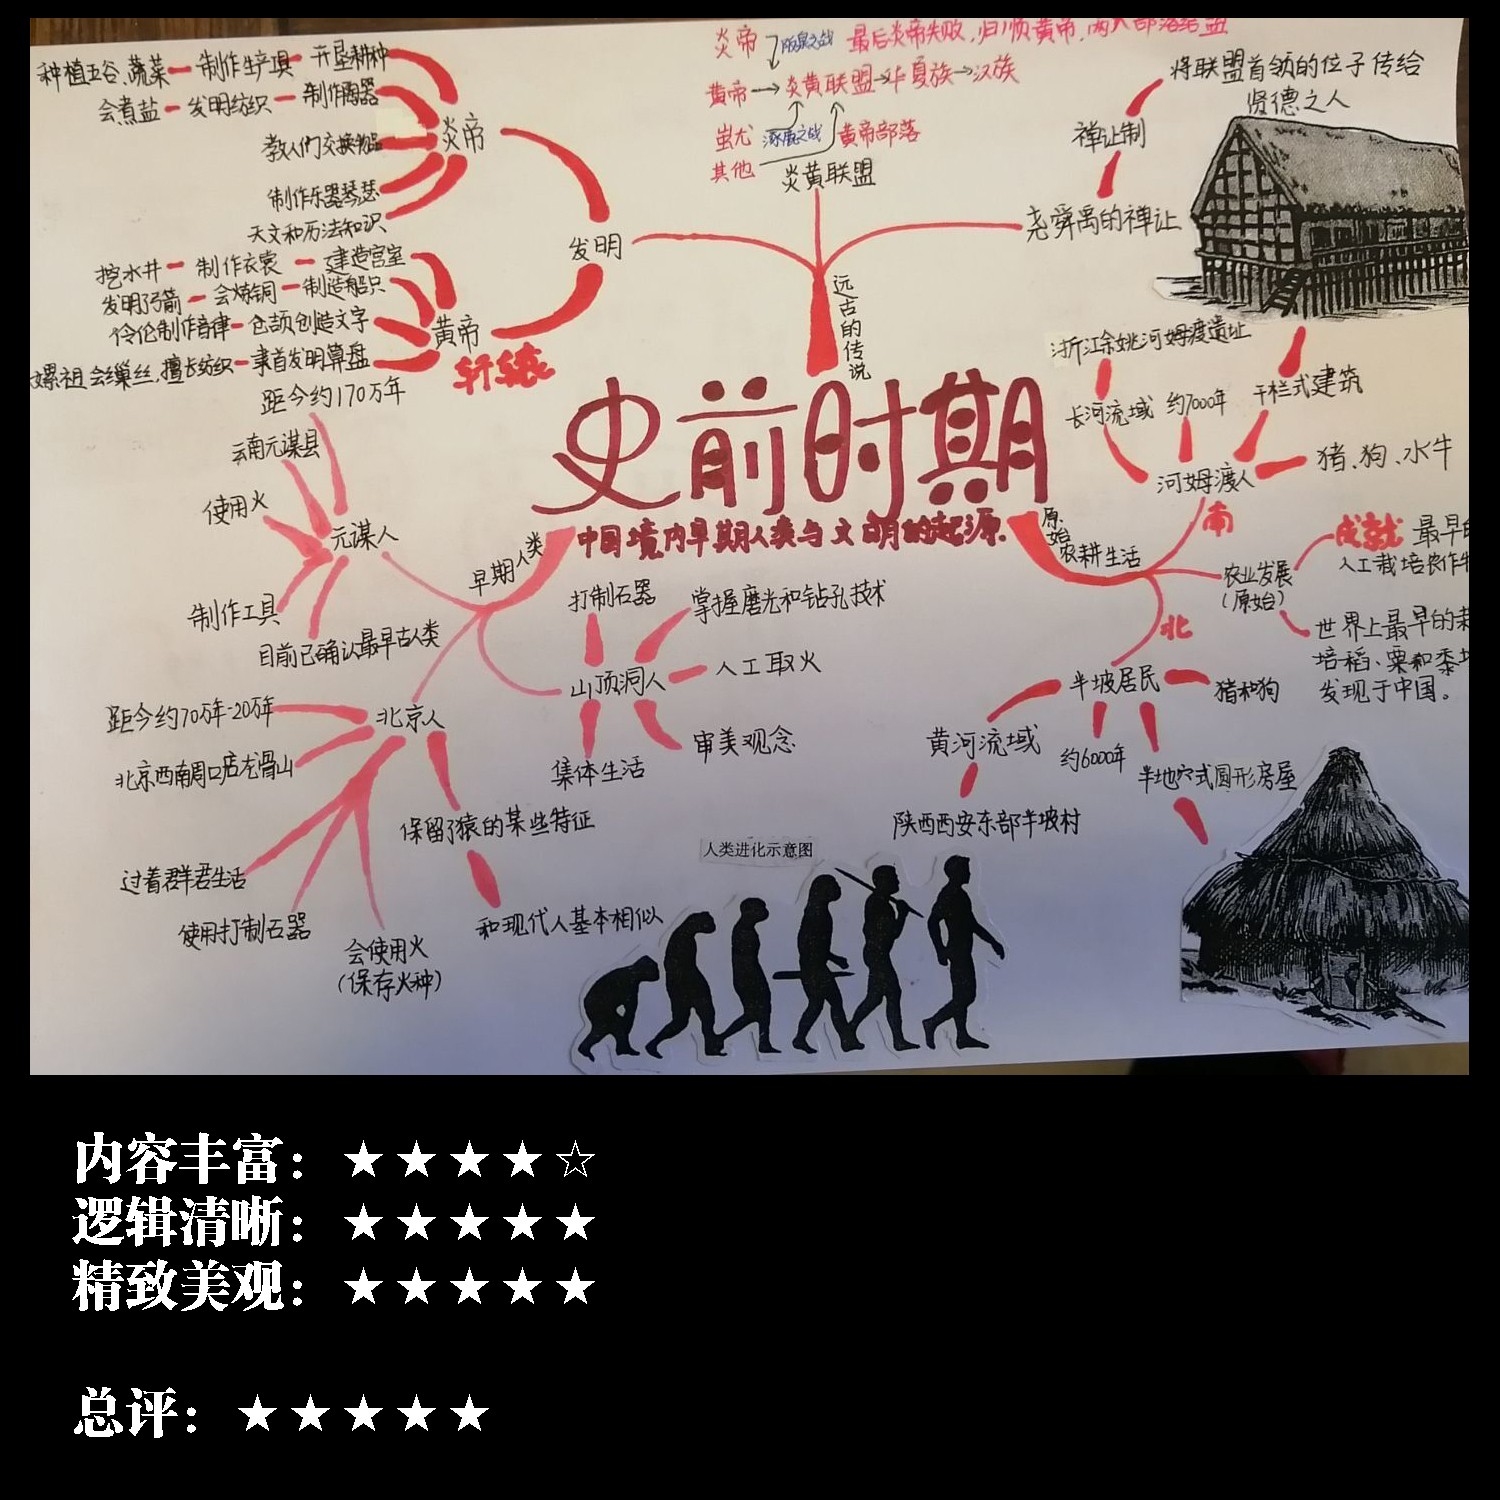 种植五谷、蔬菜 制作生产具 开垦耕种
会煮盐 发明纺织 制作陶器
教人们交换物品
制作乐器琴瑟
天文和历法知识
炎帝
发明
挖水井 制作衣裳 建造宫室
发明弓箭 会炼铜 制造船只
伶伦制作音律 仓颉创造文字
嫘祖会缫丝,擅长纺织 隶首发明算盘
黄帝
轩辕
炎帝 阪泉之战 最后炎帝失败,归顺黄帝,两大部落结盟
黄帝→炎黄联盟→华夏族→汉族
蚩尤 涿鹿之战 黄帝部落
其他
炎黄联盟
远古的传说
将联盟首领的位子传给
贤德之人
禅让制
尧舜禹的禅让
史前时期
中国境内早期人类与文明的起源.
距今约170万年
云南元谋县
使用火
元谋人
制作工具
目前已确认最早古人类
早期人类
距今约70万年-20万年
北京人
北京西南周口店龙骨山
过着群居生活
使用打制石器
会使用火
(保存火种)
保留了猿的某些特征
和现代人基本相似
打制石器
掌握磨光和钻孔技术
山顶洞人
人工取火
审美观念
集体生活
原始农耕生活
浙江余姚河姆渡遗址
长河流域 约7000年 干栏式建筑
河姆渡人
猪、狗、水牛
南
农业发展
(原始)
成就 最早的
人工栽培农作物
世界上最早的栽
培稻、粟和黍均
发现于中国。
北
半坡居民
猪和狗
黄河流域
约6000年
半地穴式圆形房屋
陕西西安东部半坡村
人类进化示意图
内容丰富：★★★★☆
逻辑清晰：★★★★★
精致美观：★★★★★
总评：★★★★★